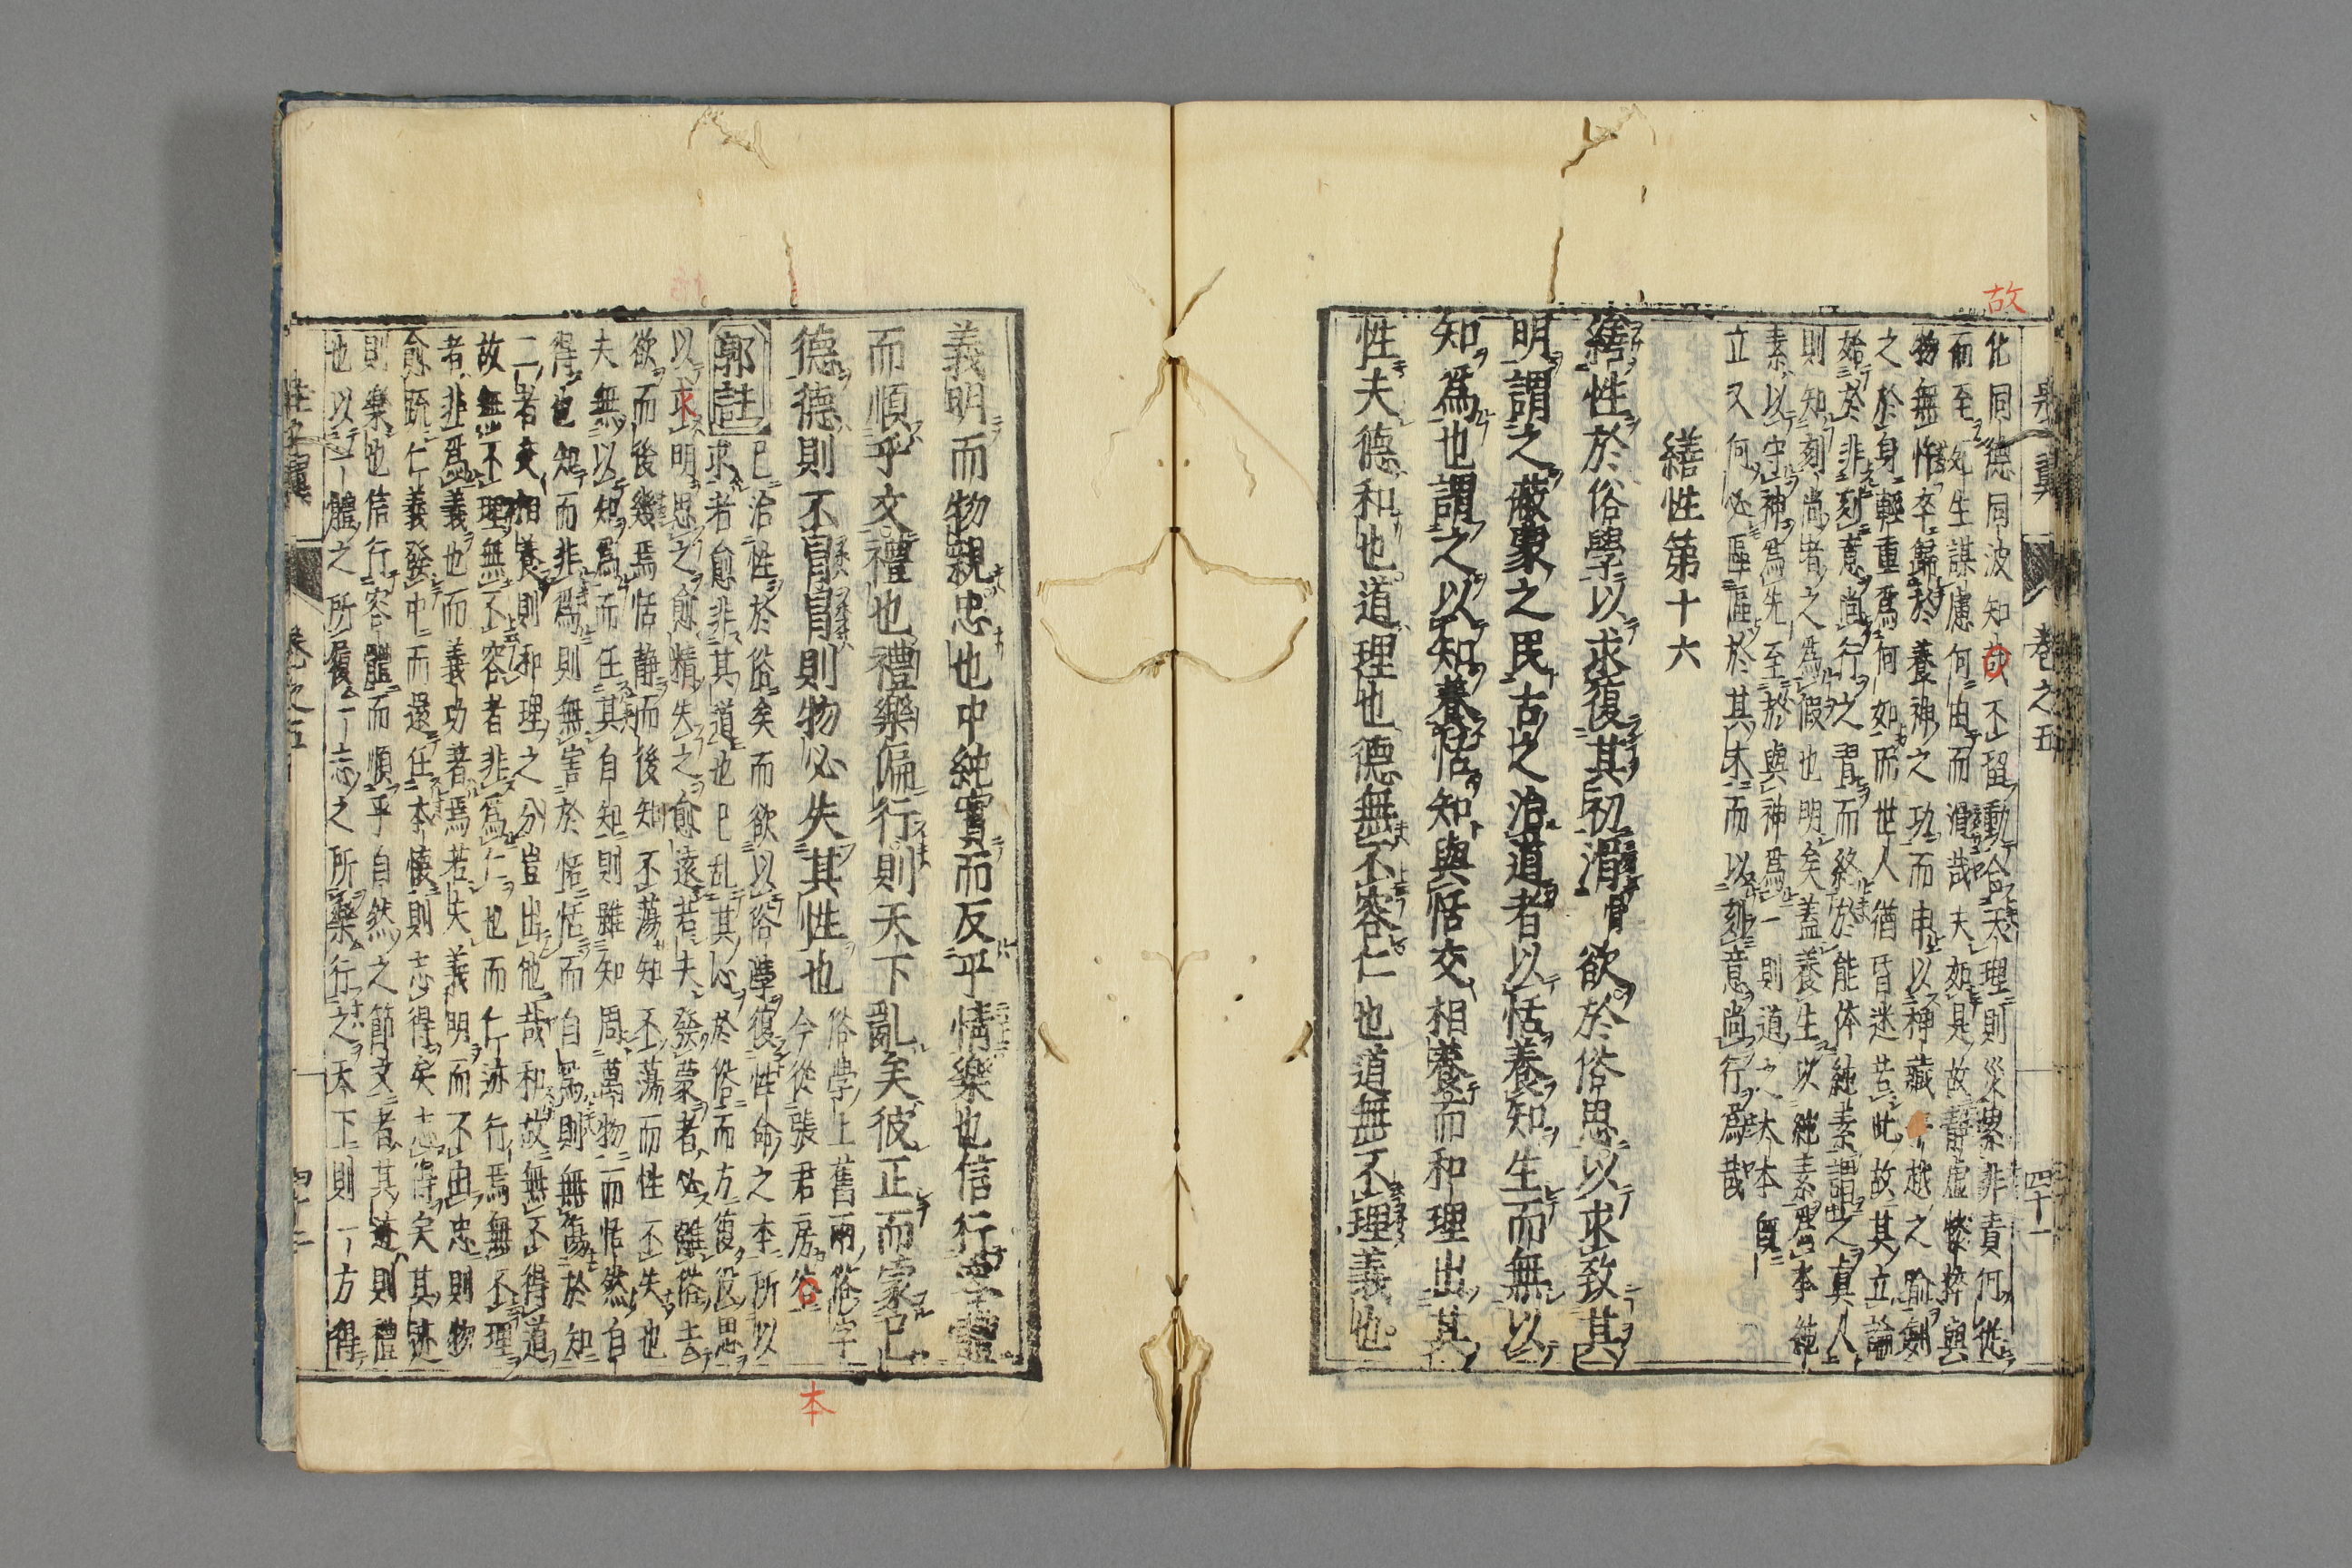 故
卷之五
四十一
化同德同波知哉不留動合天理則災累非責何從
而至死生謀慮何由而滑哉夫如是故靜虛恢粹與
物無忤卒歸於養神之功而申以神藏干越之喻劍
之於身輕重爲何如而世人猶昏迷苦此故其立論
始於非刻意尚行之習而終於能体純素謂之真人
則知刻尚者之爲假也明矣蓋養生以純素爲本純
素以守神爲先至於與神爲一則道之大本
立又何必區區於其末而以刻意尚行爲哉
繕性第十六
繕性於俗學以求復其初滑欲於俗思以求致其
明謂之蔽蒙之民古之治道者以恬養知生而無以
知爲也謂之以知養恬知與恬交相養而和理出其
性夫德和也道理也德無不容仁也道無不理義也
義明而物親忠也中純實而反乎情樂也信行容體
而順乎文禮也禮樂偏行則天下亂矣彼正而蒙己
德德則不冒冒則物必失其性也
俗學上舊兩俗字
今從張君房
本
郭註
已治性於俗矣而欲以俗學復性命之本所以
求者愈非其道也已乱其心於俗而方復役思
以求明思之愈精失之愈遠若夫發蒙者必離俗去
欲而後幾焉恬靜而後知不蕩知不蕩而性不失也
夫無以知爲而任其自知則雖知周萬物而恬然自
得也知而非爲則無害於恬恬而自爲則無傷於知
二者交相養則和理之分豈出他哉和故無不得道
故無不理無不容者非爲仁也而仁迹行焉無不理
者非爲義也而義功著焉若夫義明而不由忠則物
愈疏仁義發中而還任本懷則志得矣志得矣其迹
則樂也信行容體而順乎自然之節文者其迹則禮
也以一體之所履一志之所樂行之天下則一方得